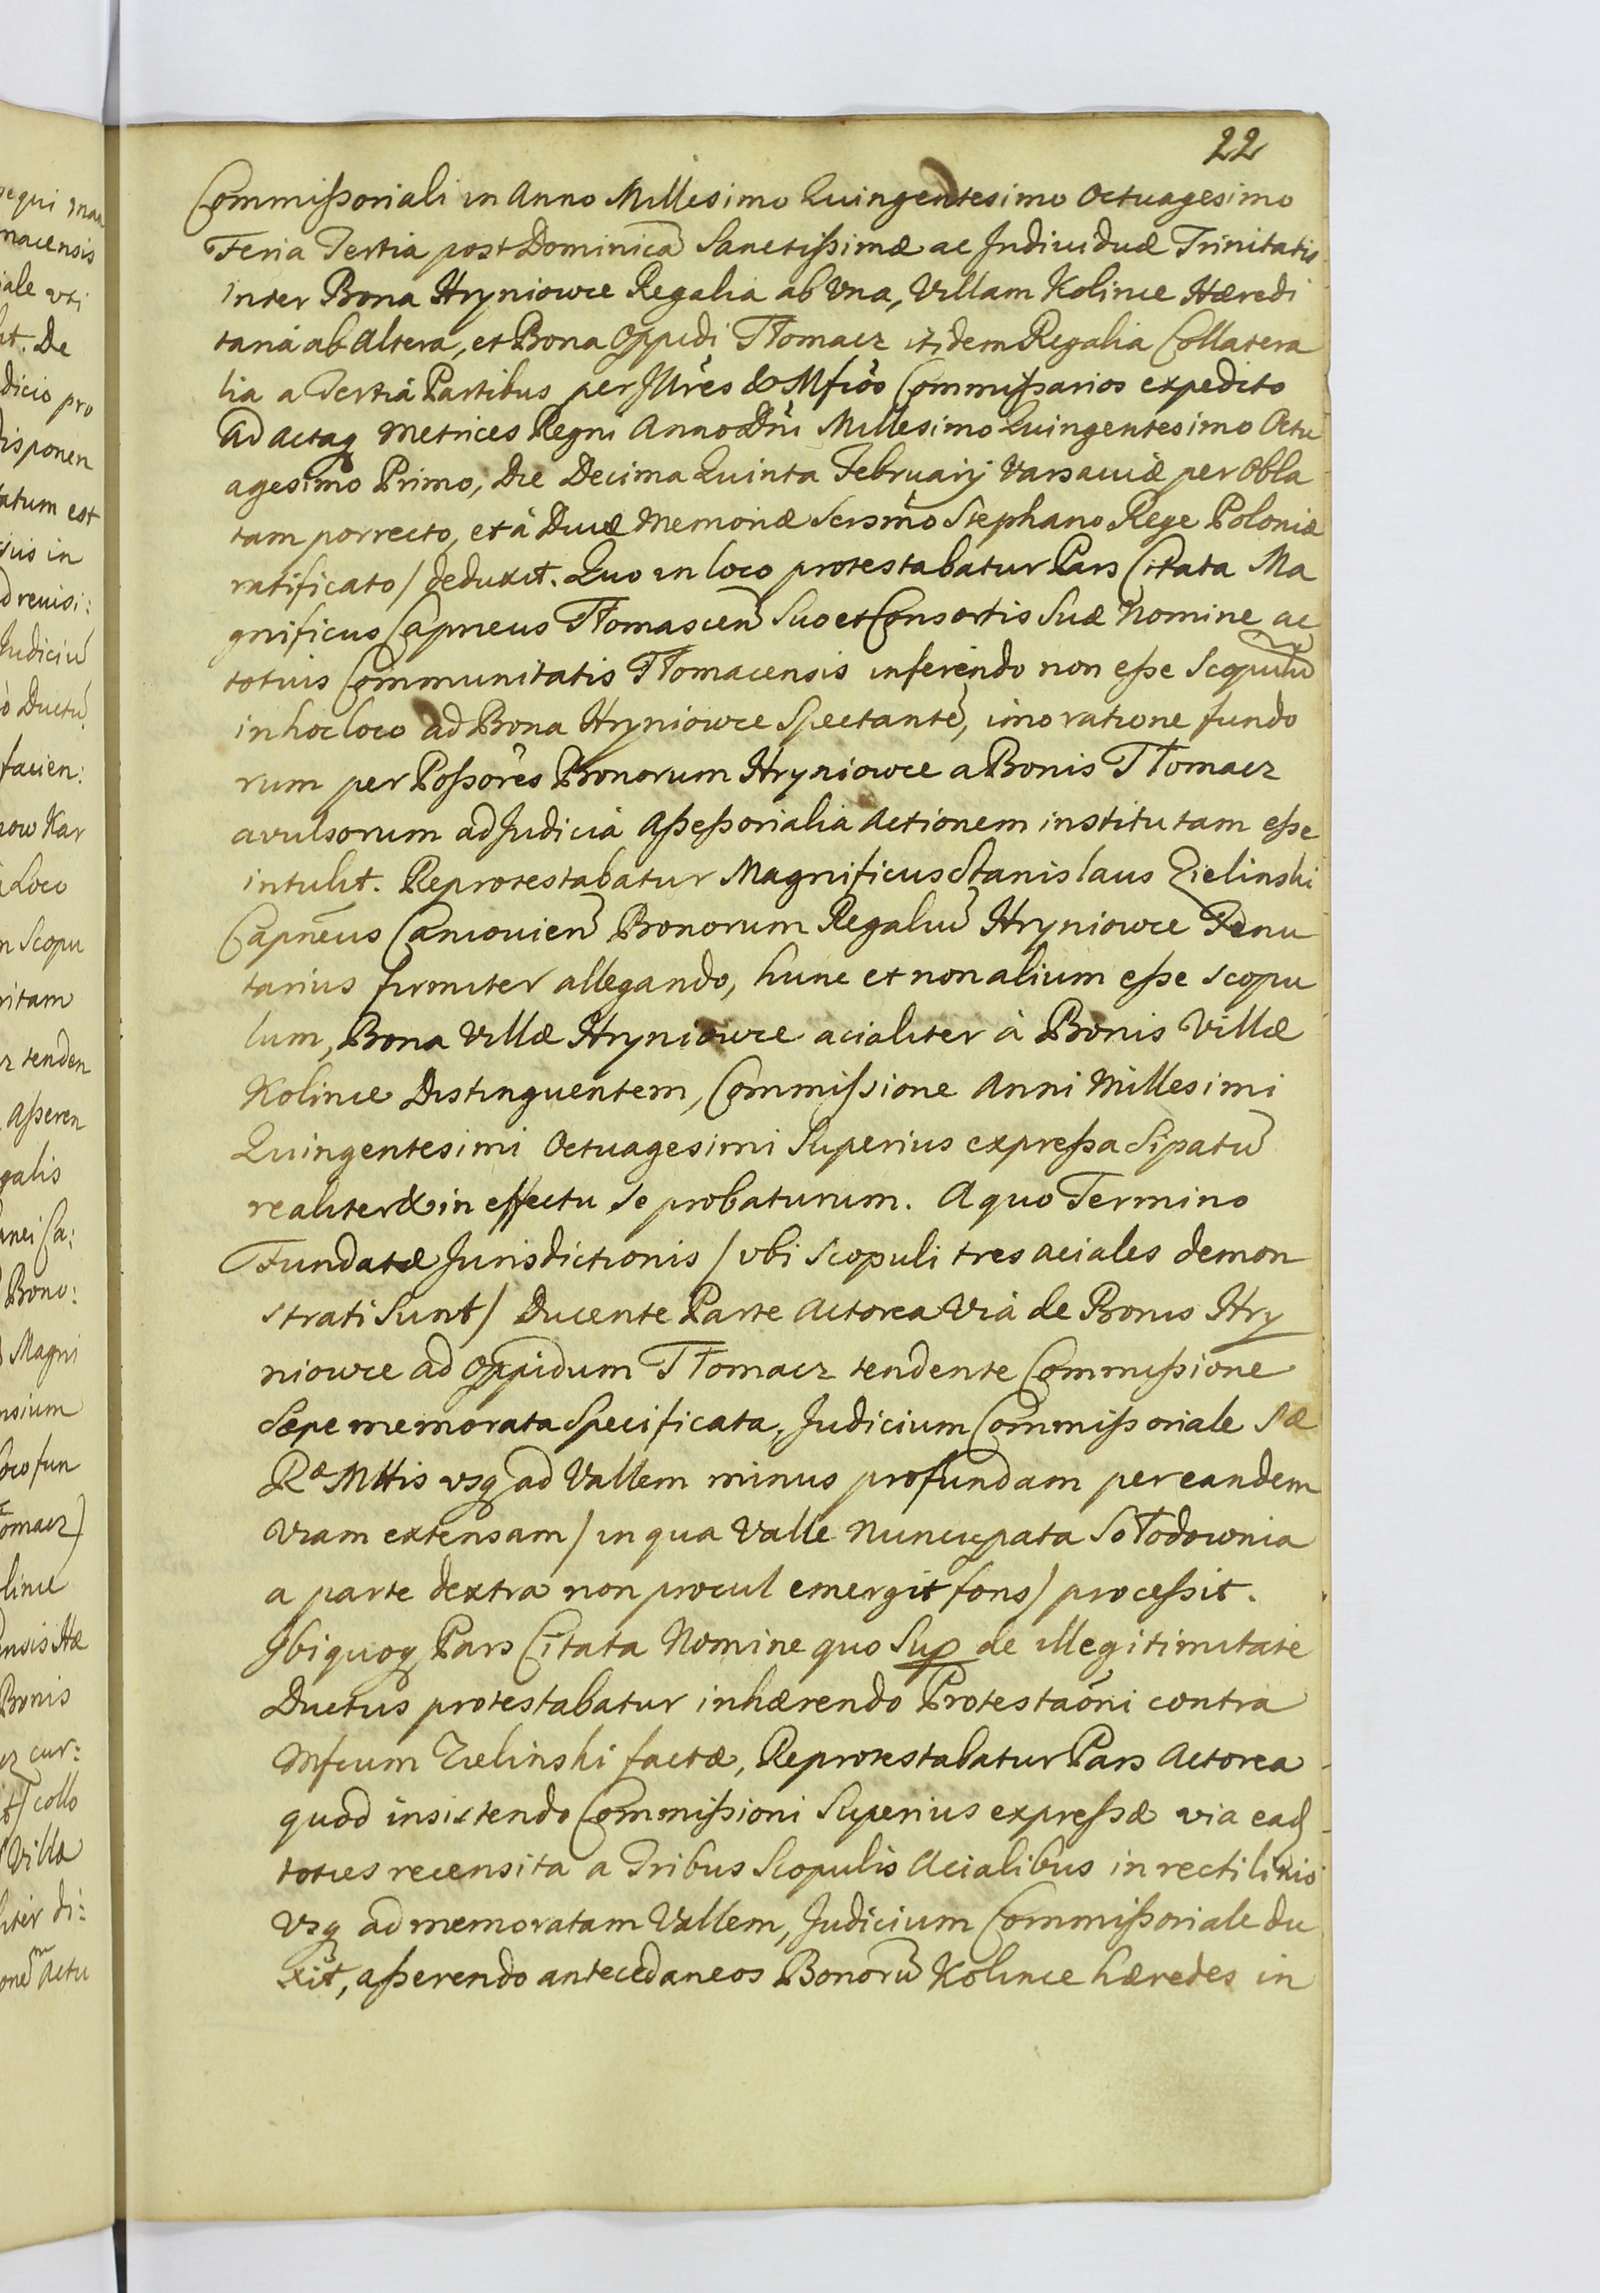 22
Commißoriali in Anno Millesimo Quingentesimo Octuagesimo
Feria Tertia post Dominicā Sanctißimæ ac Indiuiduæ Trinitatis
inter Bona Hryniowce Regalia ab Vna, Villam Kolince Hæredi
tariá ab Altera, et Bona Oppidi Tłomacz itidem Regalia Collatera
lia a Tertiâ Partibus per Illr̃es & Mfic̃os Commißarios expedito
Ad Actaq Metrices Regni Anno Dñi Millesimo Quingentesimo Octu
agesimo Primo, Die Decima Quinta Februarij Varsauiæ per Obla
tam porrecto, et â Diuæ Memoriæ Serem̃o Stephano Rege Poloniæ
ratificato / deduxit. Quo in loco protestabatur Pars Citata Ma
gnificus Capneus Tłomascen̄ Suo et Consortis Suæ Nomine ac
totius Communitatis Tłomacensis inferendo non eße Scopulū
in hoc loco ad Bona Hryniowce Spectantē, imo ratione fundo
rum per Poßor̃es Bonorum Hryniowce a Bonis Tłomacz
avulsorum ad Judicia Aßeßorialia Actionem institutam eße
intulit. Reprotestabatur Magnificus Stanislaus Zielinski
Capnēus Caniouien̄ Bonorum Regaliū Hryniowce Tenu
tarius firmiter allegando, hunc et non alium eße scopu
lum, Bona Villæ Hryniowce acialiter â Bonis Villæ
Kolince Distinguentem, Commißione Anni Millesimi
Quingentesimi Octuagesimi Superius expreßa Sipatū
realiter & in effectu se probaturum. A quo Termino
Fundatæ Jurisdictionis / vbi Scopuli tres aciales demon
strati Sunt / Ducente Parte Actorea Viâ de Bonis Hry
niowce ad Oppidum Tłomacz tendente Commißione
Sæpe memorata Specificata, Judicium Commißoriale Sæ
Ræ Mttis vsq ad Vallem minus profundam per eandem
Viam extensam / in qua Valle Nuncupata Sołodownia
a parte dextra non procul emergit fons / proceßit.
Ibi quoq Pars Citata Nomine quo Sup de illegitimitate
Ductus protestabatur inhærendo Protestaōni contra
Mficum Zielinski factæ, Reprotestabatur Pars Actorea
quod insistendo Commißioni Superius expreßæ via ead
toties recensita a Tribus Scopulis Acialibus in rectilinio
Vsq ad memoratam Vallem, Judicium Commißoriale du
xit, aßerendo antecedaneos Bonorū Kolince hæredes in